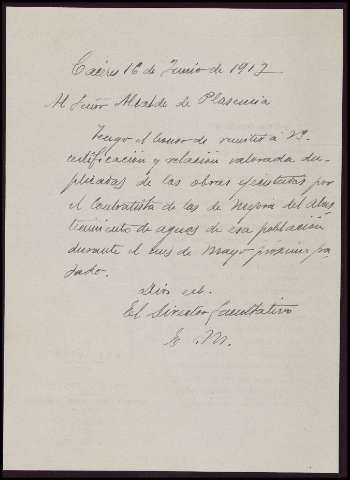 Cáceres 16 de Junio de 1917
Al Señor Alcalde de Plasencia
Tengo el honor de remitir á V.S.
certificación y relación valorada du-
plicadas de las obras ejecutadas por
el Contratista de las de mejora del abas
tecimiento de aguas de esa población
durante el mes de Mayo próximo pa-
sado.
Dios etc.
El Director facultativo
E. M.